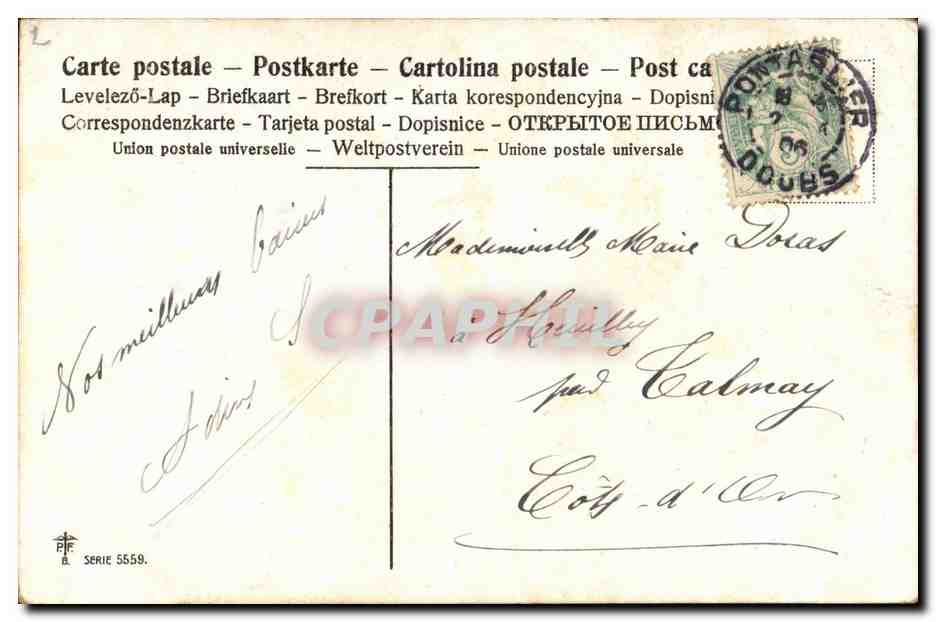 Carte postale – Postkarte – Cartolina postale – Post ca
Levelező-Lap - Briefkaart - Brefkort - Karta korespondencyjna - Dopisni
Correspondenzkarte - Tarjeta postal - Dopisnice - ОТКРЫТОЕ ПИСЬМ
Union postale universelle - Weltpostverein - Unione postale universale
PONTARLIER
06
DOUBS
5
Nos meilleurs baisers
Mademoiselle Marie Doras
à Heuilley
par Talmay
Côte-d'Or
CPAPHIL
P. F.
B. SERIE 5559.